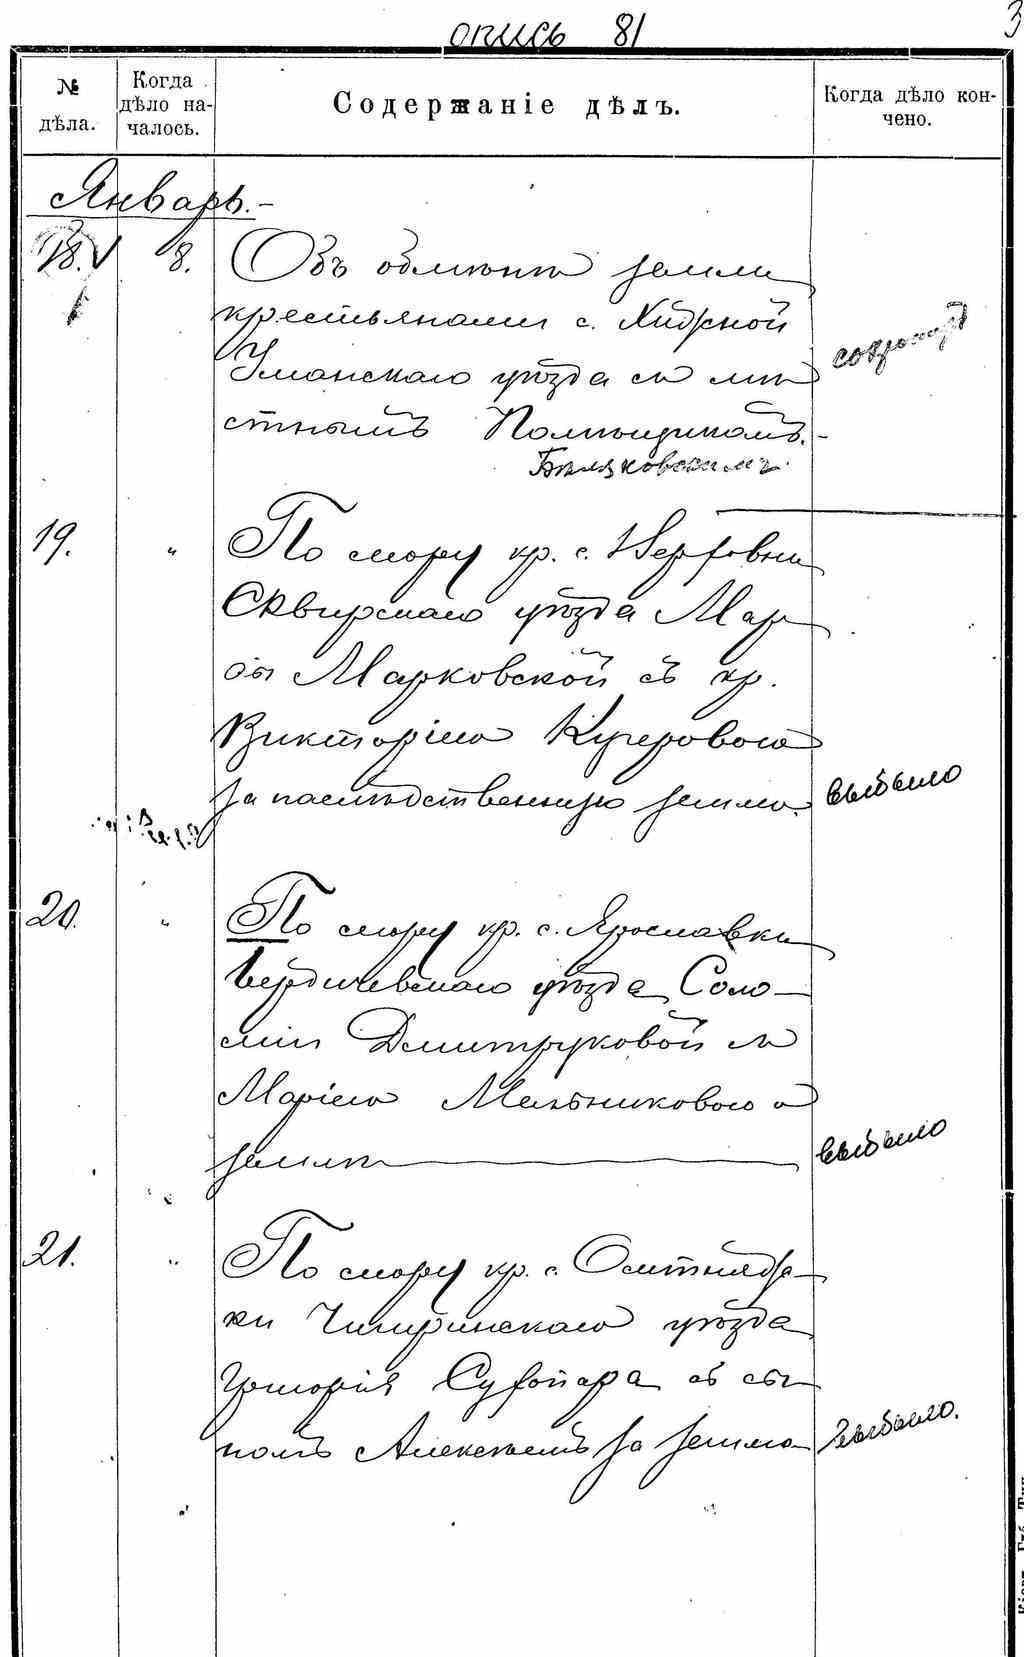 опись 81
3
№ дѣла.
Когда дѣло началось.
Содержаніе дѣлъ.
Когда дѣло кончено.
Январь.-
18. 8. Объ обмѣнѣ земли
крестьянами с.
Уманскаго уѣзда съ мѣ
стнымъ Помѣщикомъ.-
19. " По спору кр. с.
Сквирскаго уѣзда Мар
ѳы Марковской съ кр.
Викторіею Кучеровою
за наслѣдственную землю. выбыло
20. " По спору кр. с. Ярославки
Бердичевскаго уѣзда Соло-
міи Дмитруковой съ
Маріею Мельниковою о
землѣ выбыло
21. " По спору кр. с.
ки Чигиринскаго уѣзда
Григорія съ сы
номъ Алексѣемъ за землю выбыло.